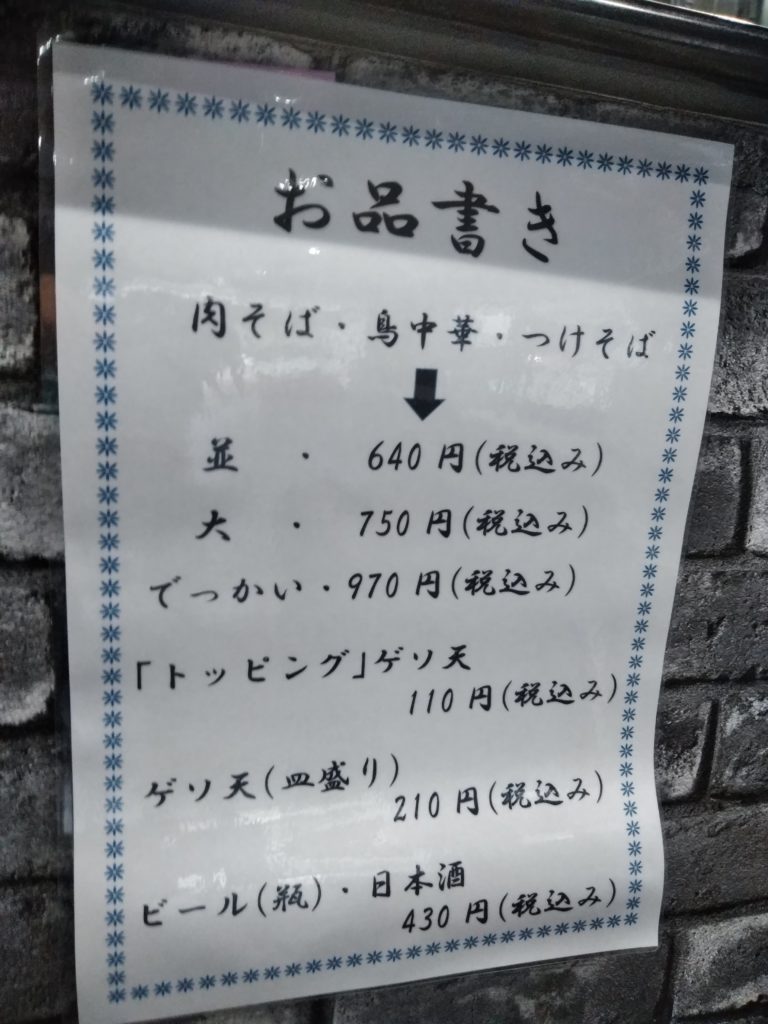 お品書き
肉そば・鳥中華・つけそば
並・640円(税込み)
大・750円(税込み)
でっかい・970円(税込み)
「トッピング」ゲソ天
110円(税込み)
ゲソ天(皿盛り)
210円(税込み)
ビール(瓶)・日本酒
430円(税込み)